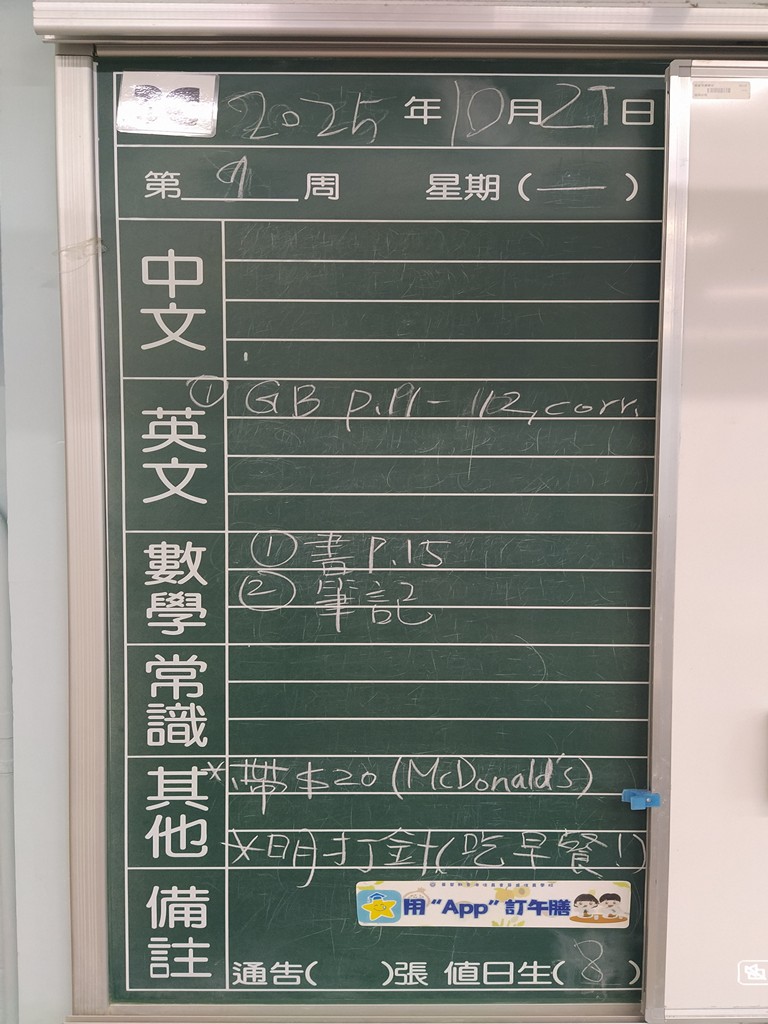 2025年10月27日
第9周 星期(一)
中文
英文
① GB p.111-112, corr.
數學
① 書 P.15
② 筆記
常識
其他
*帶$20 (McDonald's)
*明打針(吃早餐!)
備註
用“App”訂午膳
通告( )張 值日生(8)